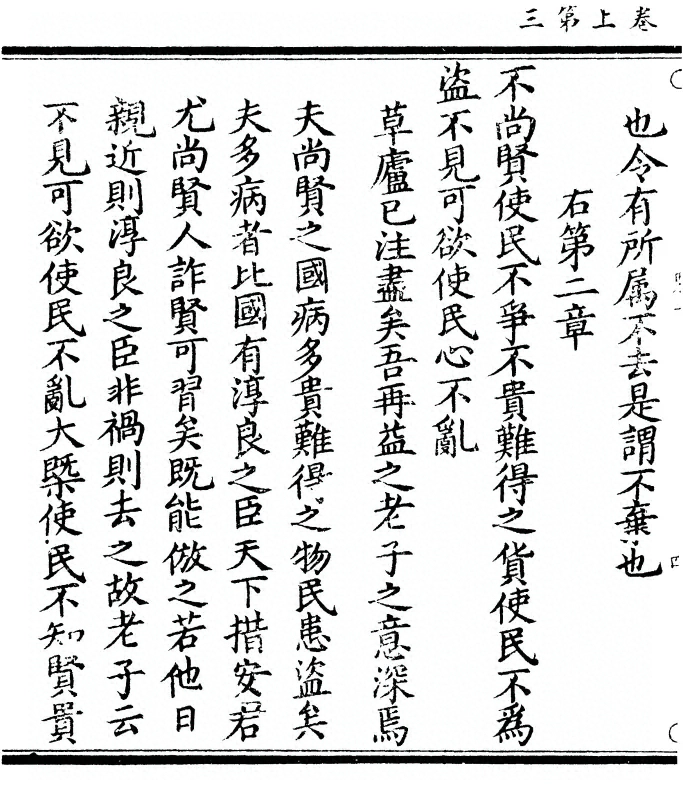 卷上第三
也令有所属不去是謂不棄也
右第二章
不尚賢使民不爭不貴難得之貨使民不為
盜不見可欲使民心不亂
草廬已注盡矣吾再益之老子之意深焉
夫尚賢之國病多貴難得之物民患盜矣
夫多病者比國有淳良之臣天下措安君
尤尚賢人詐賢可習矣既能倣之若他日
親近則淳良之臣非禍則去之故老子云
不見可欲使民不亂大槩使民不知賢貴